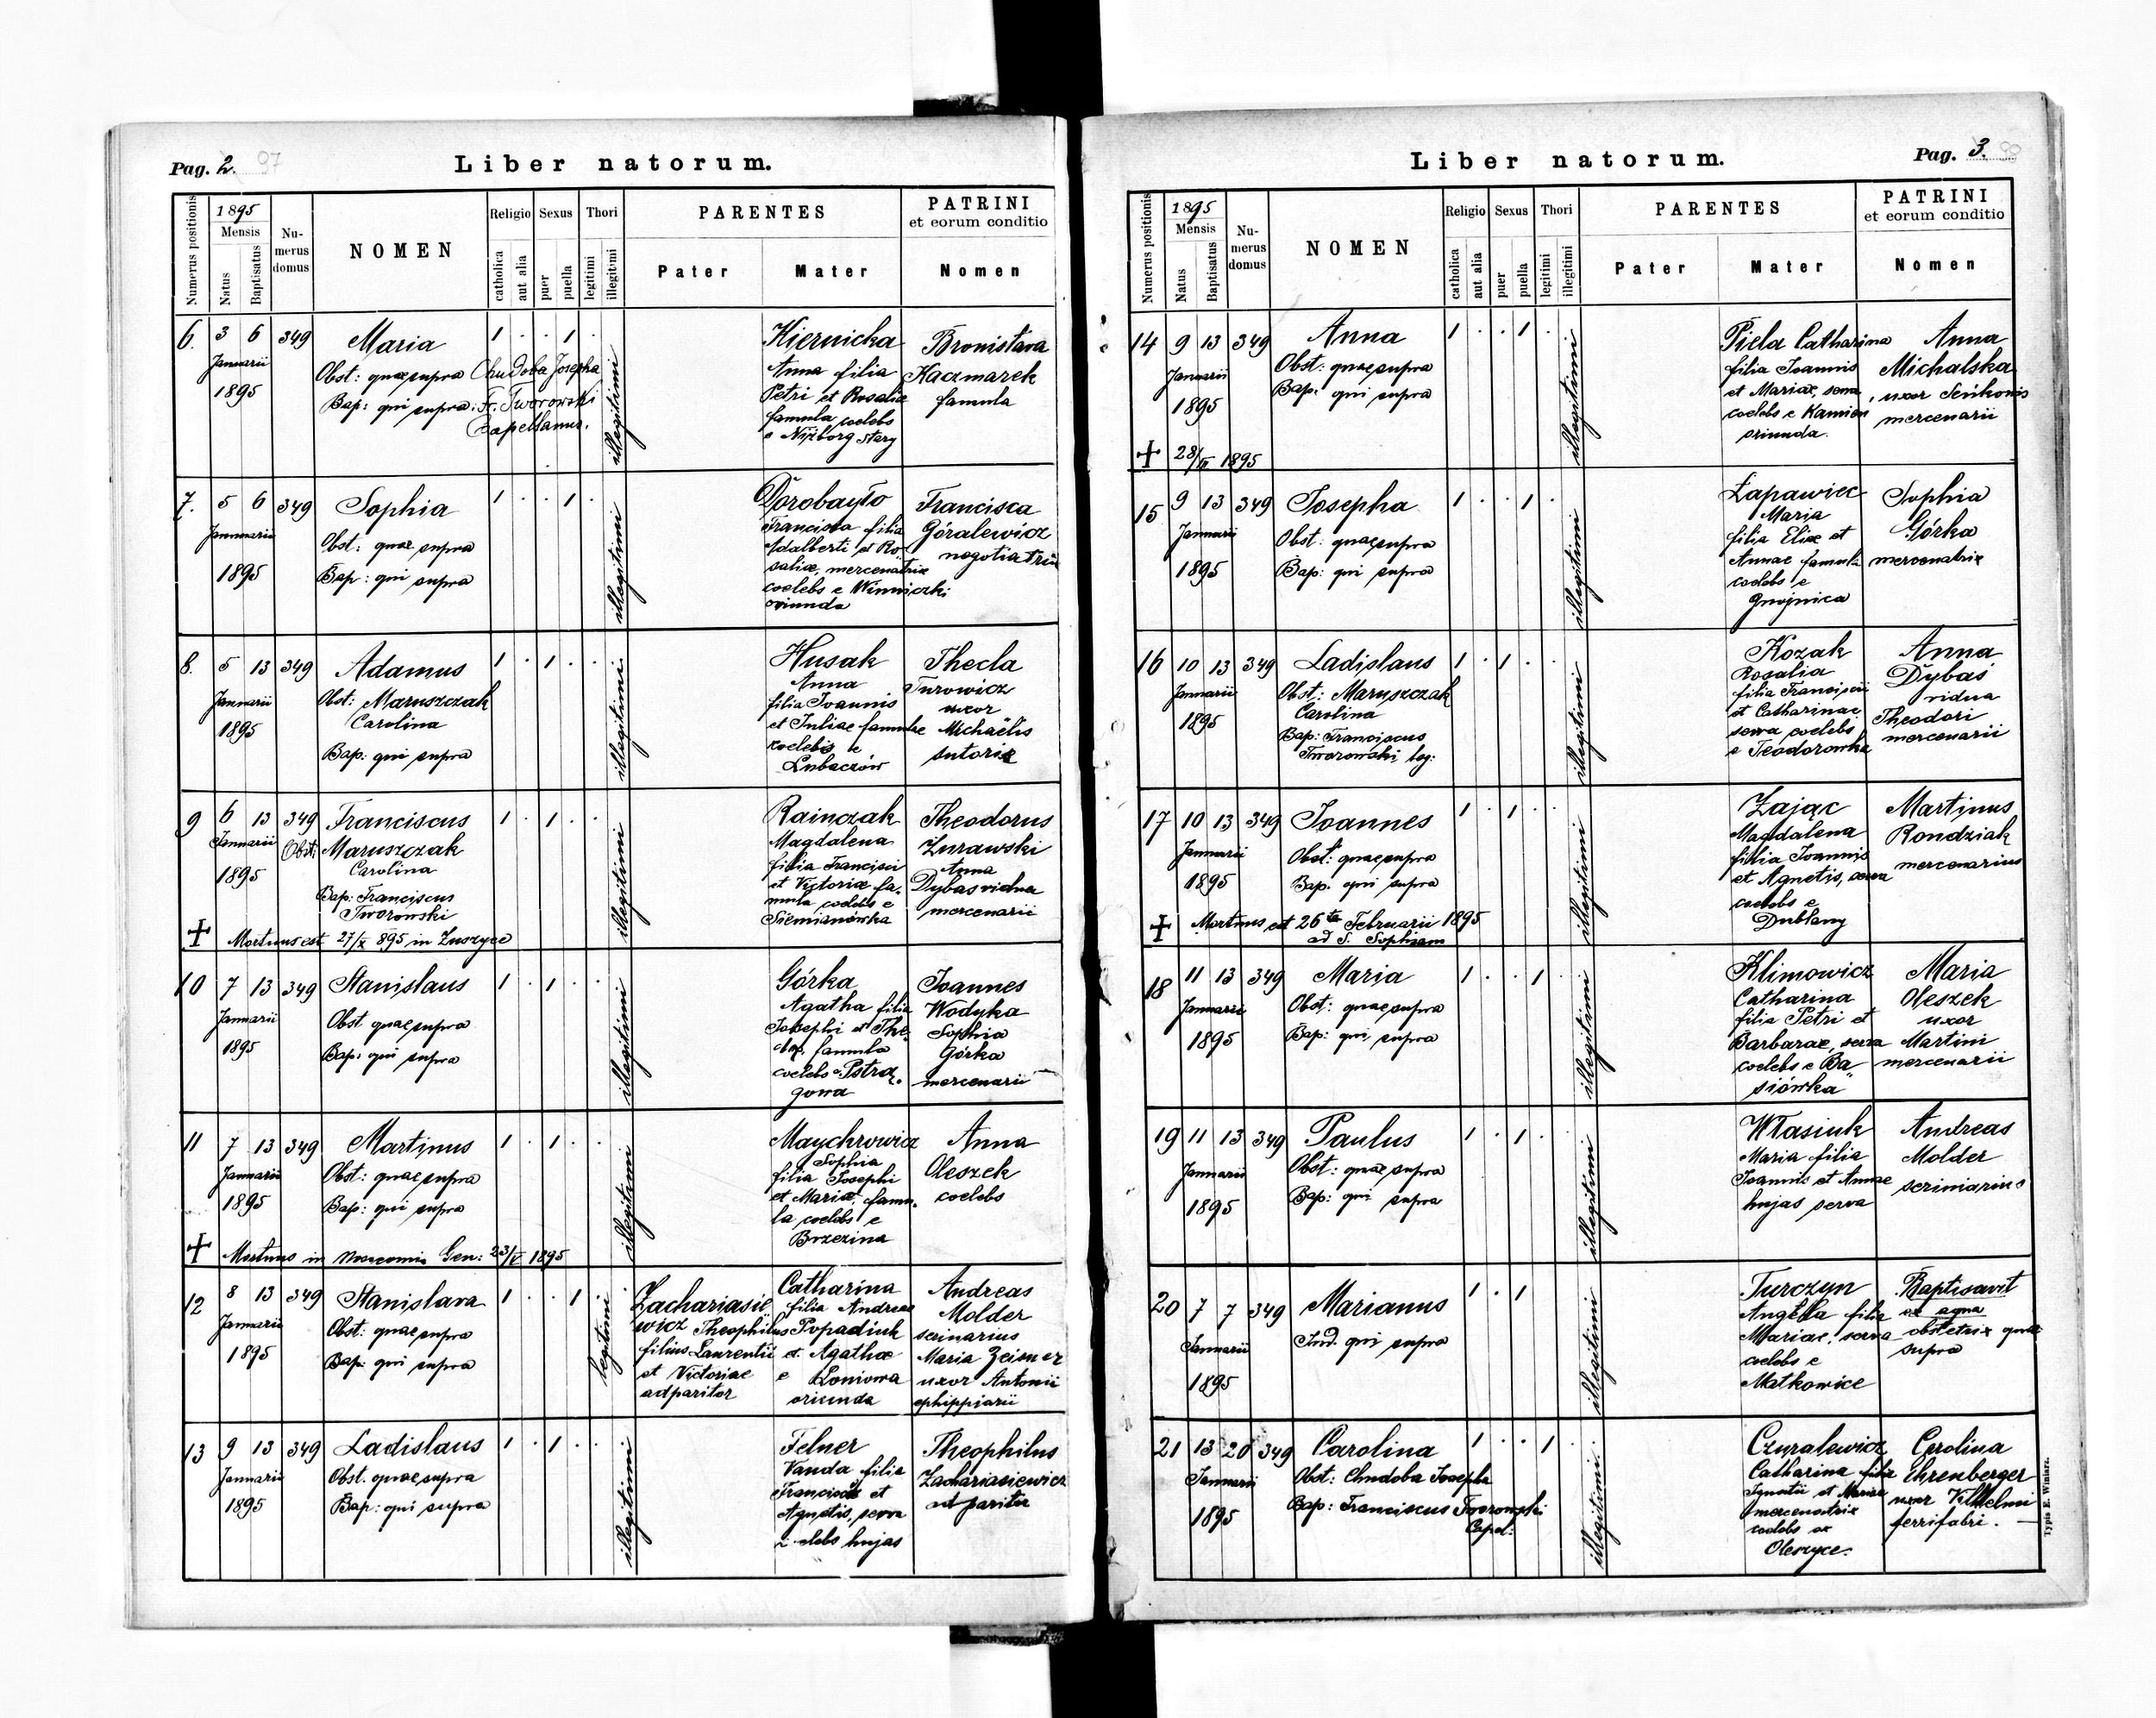 Pag. 2. 97
Liber natorum.
Numerus positionis
1895
Mensis
Natus
Baptisatus
Nu-
merus
domus
NOMEN
Religio
catholica
aut alia
Sexus
puer
puella
Thori
legitimi
illegitimi
PARENTES
Pater
Mater
PATRINI
et eorum conditio
Nomen
6. 3 6 349 Maria 1 . . 1 .
Januarii
1895
Obst: quae supra Chudoba Josepha
Bap: qui supra: Fr. Tworowski
Capellanus.
illegitimi
Kiernicka
Anna filia
Petri et Rosaliae
famula coelebs
e Niżborg stary
Bronisława
Kaczmarek
famula
7. 5 6 349 Sophia 1 . . 1 .
Januarii
1895
Obst: quae supra
Bap: qui supra
illegitimi
Dorobayło
Francisca filia
Adalberti et Ro-
saliae, mercenatrix
coelebs e Winniczki
oriunda
Francisca
Góralewicz
negotiatrix
8. 5 13 349 Adamus 1 . 1 . .
Januarii
1895
Obst: Maruszczak
Carolina
Bap: qui supra
illegitimi
Husak
Anna
filia Joannis
et Juliae famulae
coelebis e
Lubaczów
Thecla
Turowicz
uxor
Michaëlis
sutoris
9 6 13 349 Franciscus 1 . 1 . .
Januarii
1895
Obst: Maruszczak
Carolina
Bap: Franciscus
Tworowski
+ Mortuus est 27/X 895 in Zuszyce
illegitimi
Rainczak
Magdalena
filia Francisci
et Victoriae fa-
mula coelebs e
Siemianówka
Theodorus
Żurawski
Anna
Dybas vidua
mercenarii
10 7 13 349 Stanislaus 1 . 1 . .
Januarii
1895
Obst quae supra
Bap: qui supra
illegitimi
Górka
Agatha filia
Josephi et The-
famula
coelebs e Pstrą-
gowa
Joannes
Wodyka
Sophia
Górka
mercenarii
11 7 13 349 Martinus 1 . 1 . .
Januarii
1895
Obst: quae supra
Bap: qui supra
+ Mortuus in Gen: 23/V 1895
illegitimi
Maychrowicz
Sophia
filia Josephi
et Mariae, famu-
la coelebs e
Brzezina
Anna
Oleszek
coelebs
12 8 13 349 Stanislava 1 . . 1
Januarii
1895
Obst: quae supra
Bap: qui supra
legitimi
Zachariasie
wicz Theophilus
filius Laurentii
et Victoriae
adparitor
Catharina
filia Andreae
Popadiuk
et Agathae
e Koniowa
oriunda
Andreas
Molder
scriniarius
Maria Zeisner
uxor Antonii
ephippiarii
13 9 13 349 Ladislaus 1 . 1 . .
Januarii
1895
Obst. quae supra
Bap: qui supra
illegitimi
Felner
Vanda filia
Francisci et
Agnetis, serva
coelebs hujas
Theophilus
Zachariasiewicz
adparitor
Liber natorum.
Pag. 3.
Numerus positionis
1895
Mensis
Natus
Baptisatus
Nu-
merus
domus
NOMEN
Religio
catholica
aut alia
Sexus
puer
puella
Thori
legitimi
illegitimi
PARENTES
Pater
Mater
PATRINI
et eorum conditio
Nomen
14 9 13 349 Anna 1 . . 1 .
Januarii
1895
Obst: quae supra
Bap: qui supra
+ 28/II 1895
illegitimi
Piela Catharina
filia Joannis
et Mariae, serva
coelebs e Kamień
oriunda.
Anna
Michalska
uxor Seńkonis
mercenarii
15 9 13 349 Josepha 1 . . 1 .
Januarii
1895
Obst: quae supra
Bap: qui supra
illegitimi
Łapawiec
Maria
filia Eliae et
Annae famula
coelebs e
Gnojnica
Sophia
Górka
mercenatrix
16 10 13 349 Ladislaus 1 . 1 . .
Januarii
1895
Obst: Maruszczak
Carolina
Bap: Franciscus
Tworowski
illegitimi
Kozak
Rosalia
filia Francisci
et Catharinae
serva coelebs
e Teodorowka
Anna
Dybaś
vidua
Theodori
mercenarii
17 10 13 349 Joannes 1 . 1 . .
Januarii
1895
Obst: quae supra
Bap. qui supra
+ Mortuus est 26ta Februarii 1895
ad S. Sophiam
illegitimi
Zając
Magdalena
filia Joannis
et Agnetis, serva
coelebs e
Dublany
Martinus
Rondziak
mercenarius
18 11 13 349 Maria 1 . . 1 .
Januarii
1895
Obst: quae supra
Bap: qui supra
illegitimi
Klimowicz
Catharina
filia Petri et
Barbarae, serva
coelebs e Ba
siówka
Maria
Oleszek
uxor
Martini
mercenarii
19 11 13 349 Paulus 1 . 1 . .
Januarii
1895
Obst: quae supra
Bap: qui supra
illegitimi
Własiuk
Maria filia
Joannis et Annae
hujas serva
Andreas
Molder
scriniarius
20 7 7 349 Marianus 1 . 1
Januarii
1895
Ind. qui supra
illegitimi
Turczyn
Angela filia
Mariae, serva
coelebs e
Matkowice
Baptisavit
ex aqua
obstetrix quae
supra
21 13 20 349 Carolina 1 . . 1 .
Januarii
1895
Obst: Chudoba Josepha
Bap: Franciscus Tworowski
Capel:
illegitimi.
Czuralewicz
Catharina filia
Ignatii et Mariae
mercenatrix
coelebs ex
Oleszyce.
Carolina
Ehrenberger
uxor Vilhelmi
ferrifabri.
Typis E. Winiarz.